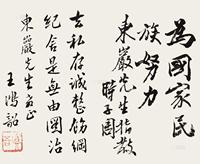 為國家民
族努力
東巖先生指教
時子周
去私存誠整飭綱
紀舍是無由國治
東巖先生正
王鴻韶